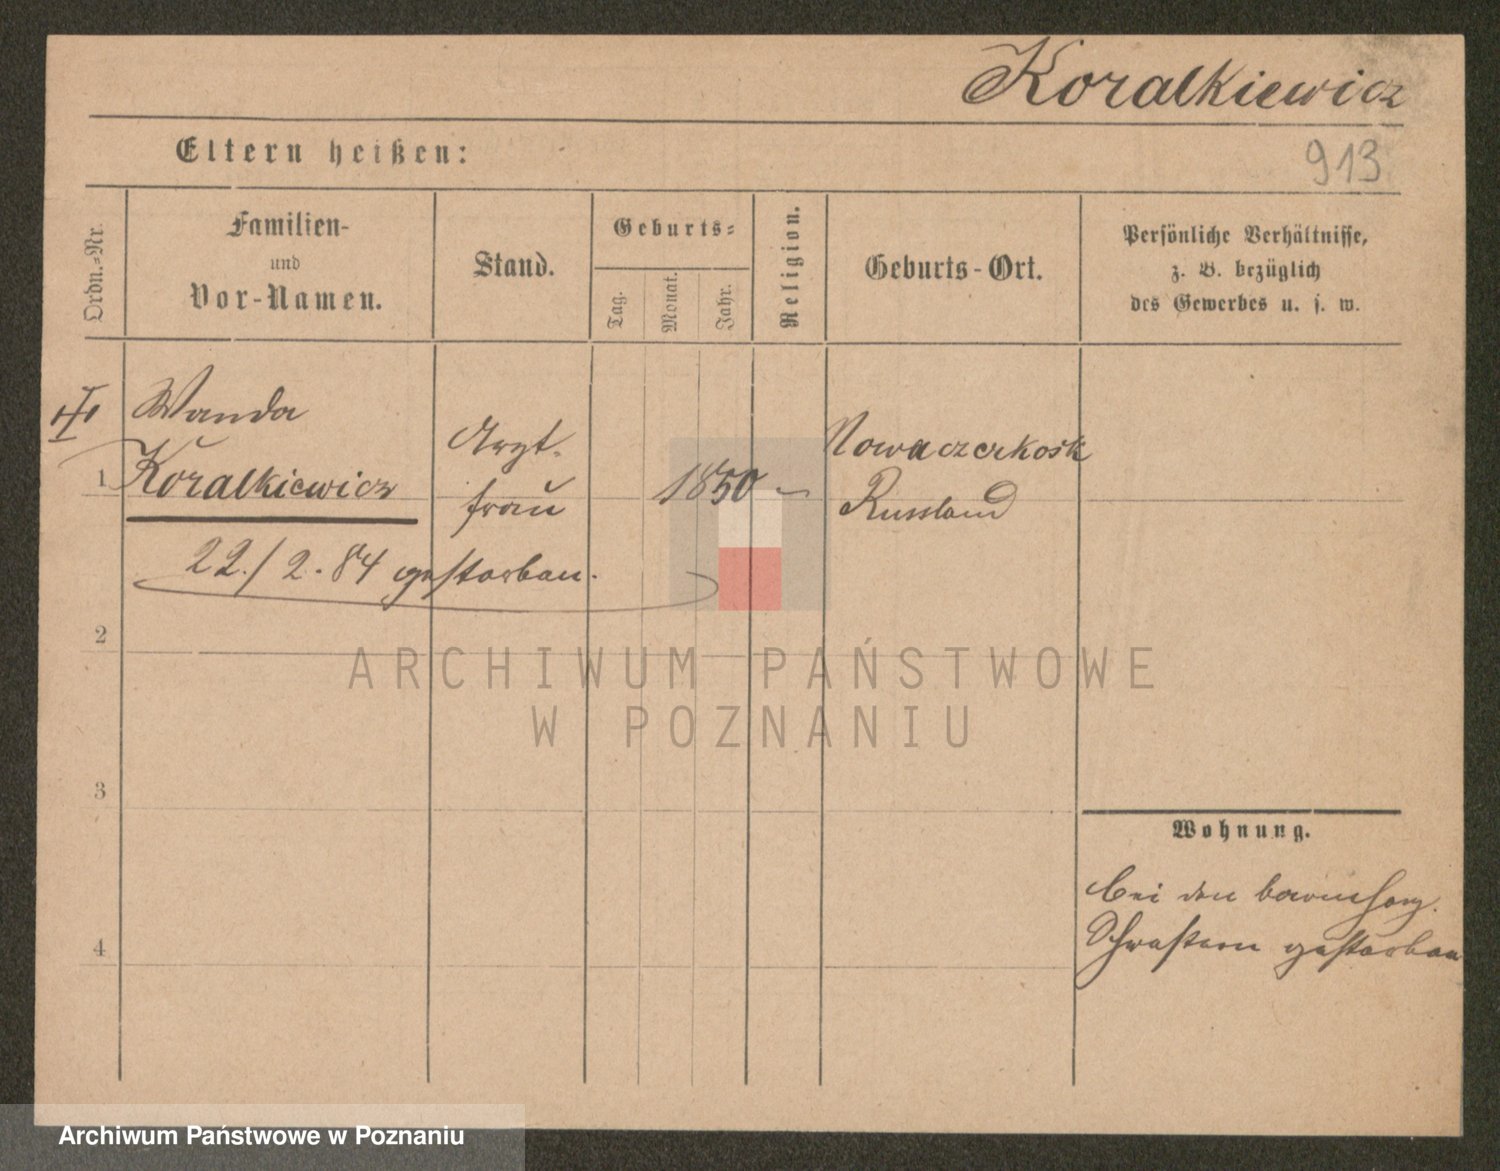 Koralkiewicz
Eltern heißen:
913
Ordn.=Nr.
Familien-
und
Vor-Namen.
Stand.
Geburts=
Tag.
Monat.
Jahr.
Religion.
Geburts-Ort.
Persönliche Verhältnisse,
z. B. bezüglich
des Gewerbes u. s. w.
Wanda
1 Koralkiewicz
Arzt-
frau
1850
Nowaczerkosk
Russland
22./2.84 gestorben.
2
3
4
Wohnung.
bei den barmherz.
Schwestern gestorben
ARCHIWUM PAŃSTWOWE
W POZNANIU
Archiwum Państwowe w Poznaniu